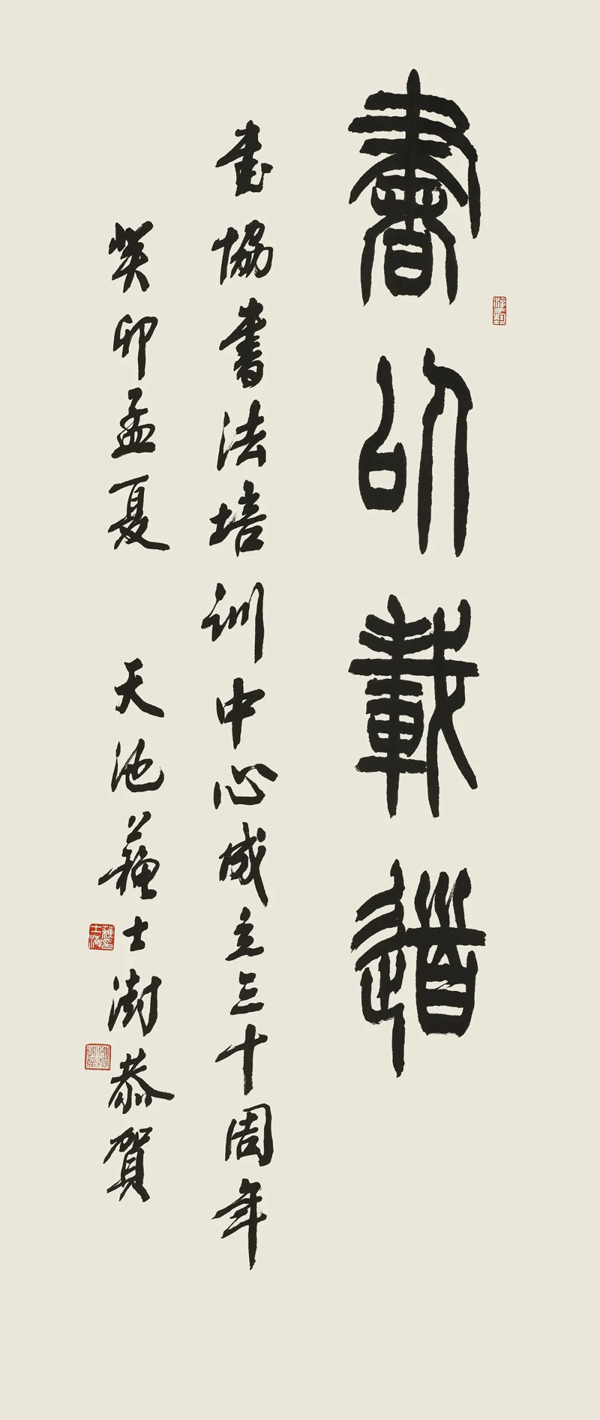 書以載道
书協書法培训中心成立三十周年
癸卯孟夏 天池蘇士澍恭賀